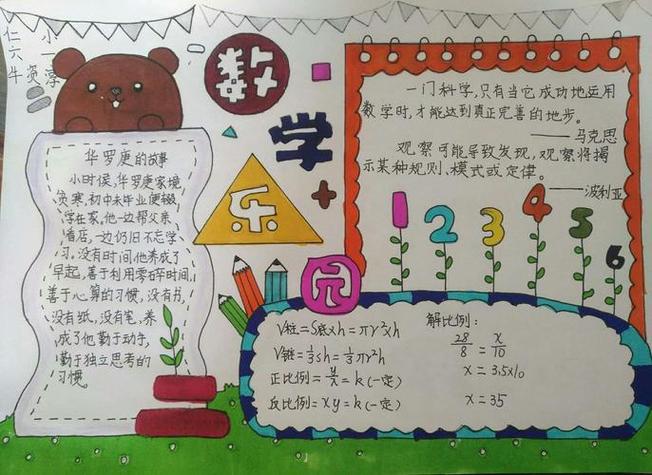 数
学
乐
园
华罗庚的故事
小时候,华罗庚家境
贫寒,初中未毕业便辍
学在家。他一边帮父亲
看店,一边仍旧不忘学
习。没有时间,他养成了
早起,善于利用零碎时间,
善于心算的习惯,没有书,
没有纸,没有笔,养
成了他勤于动手,
勤于独立思考的
习惯。
一门科学,只有当它成功地运用
数学时,才能达到真正完善的地步。
——马克思
观察可能导致发现,观察将揭
示某种规则、模式或定律。
——波利亚
1 2 3 4 5 6
V柱=S底xh=πr²xh
V锥=⅓sh=⅓πr²h
正比例=y/x=k(一定)
反比例=xy=k(一定)
解比例:
28/8=x/10
x=3.5x10
x=35